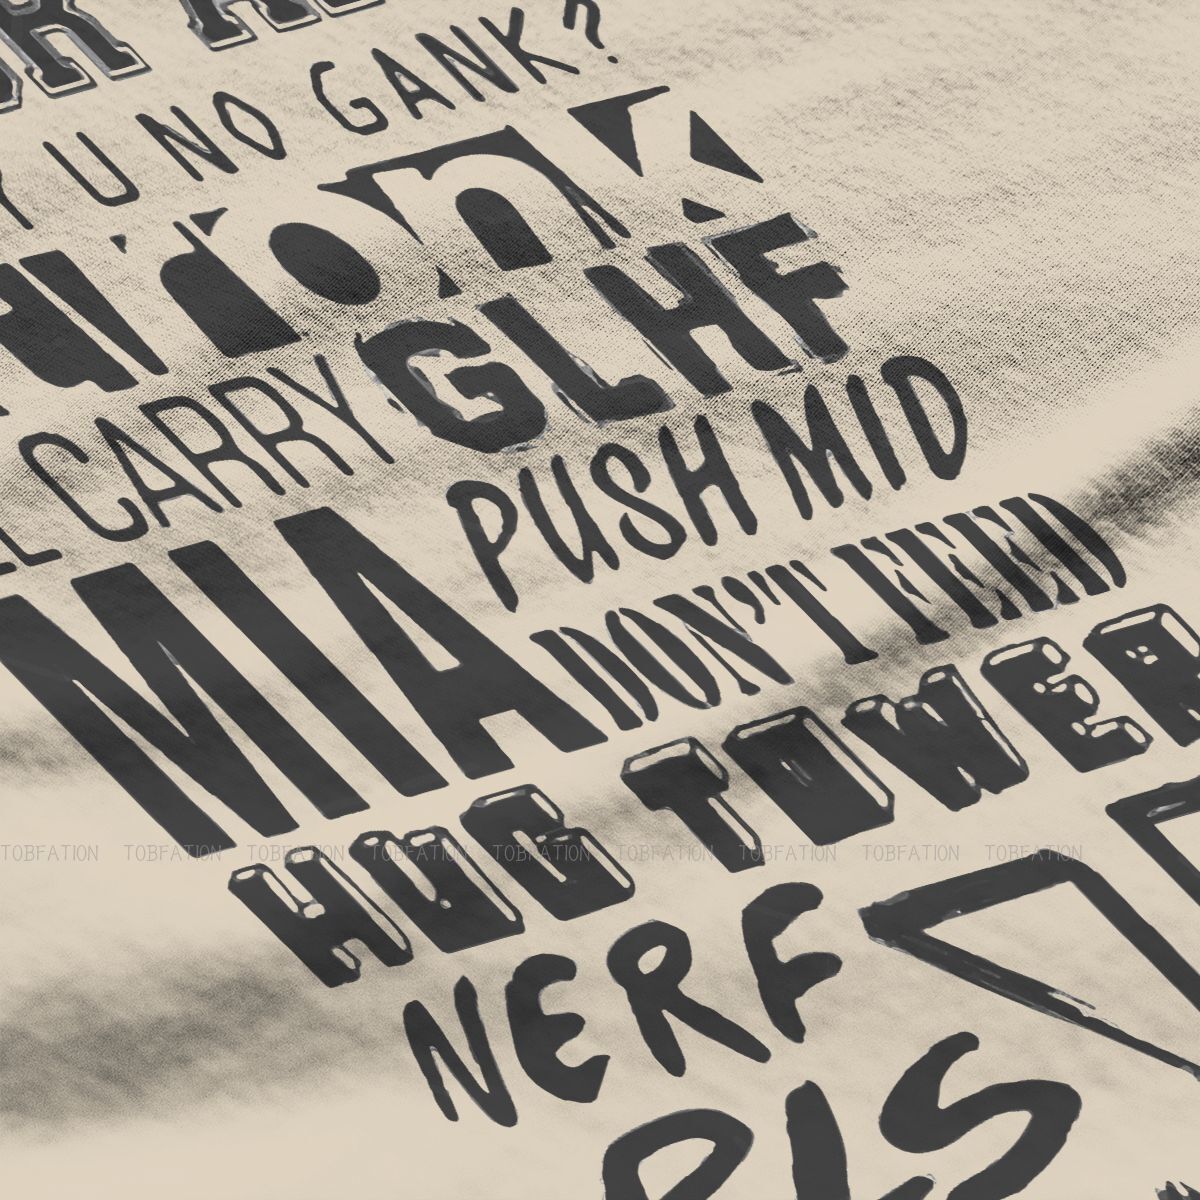 Y U NO GANK?
CARRY
GLHF
PUSH MID
MIA
DON'T FEED
HUG TOWER
TOBFATION TOBFATION TOBFATION TOBFATION TOBFATION TOBFATION TOBFATION TOBFATION TOBFATION
NERF
PLS